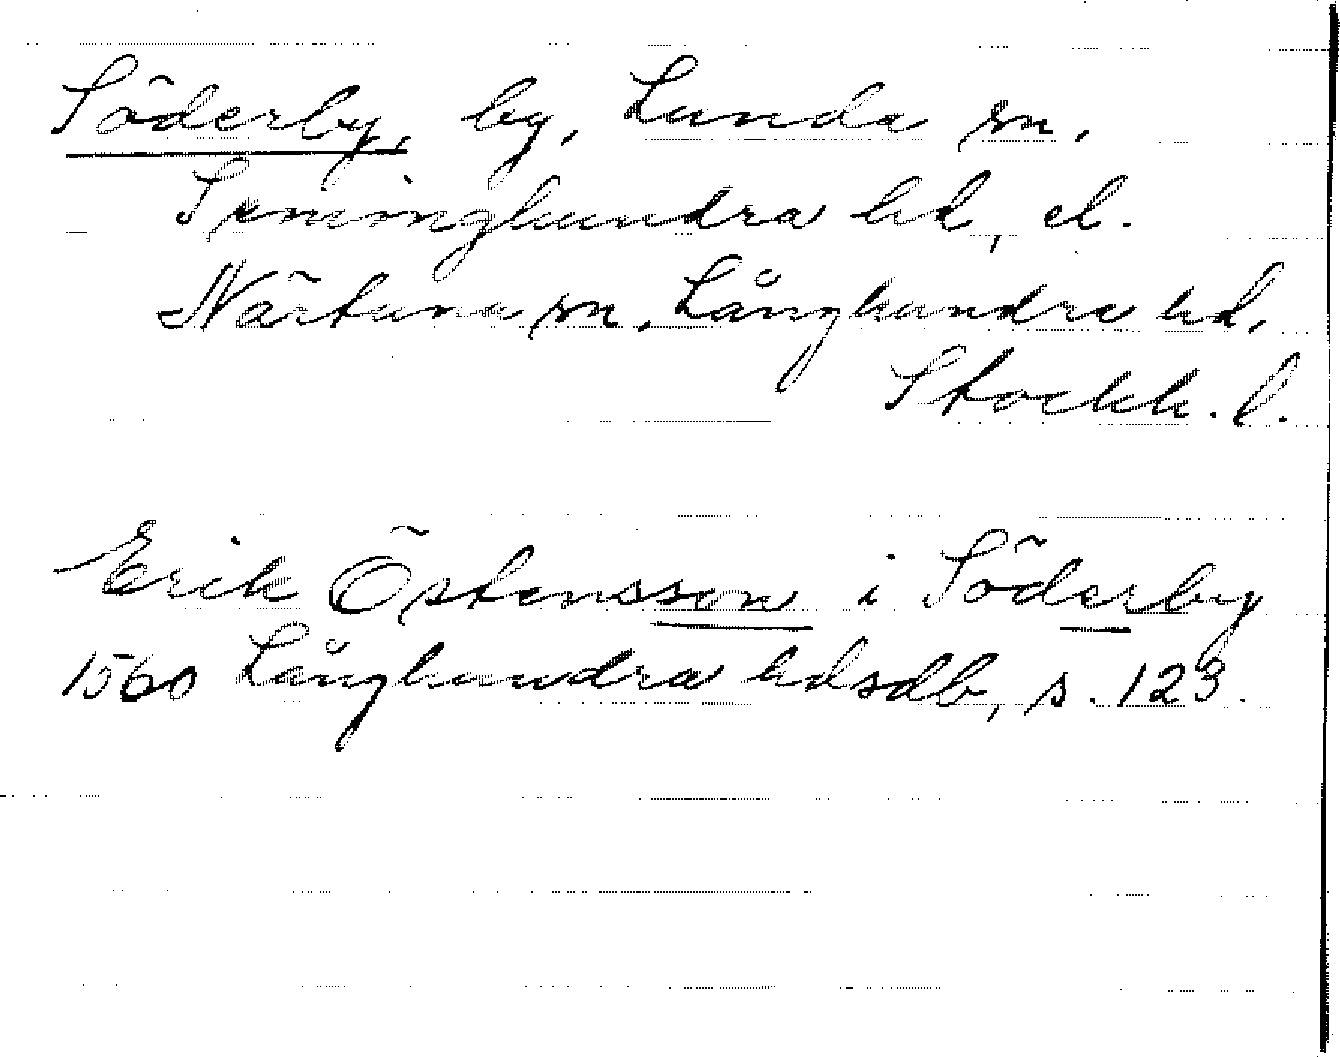 Söderby, by, Lunda sn,
Seminghundra hd, el.
Närtuna sn, Långhundra hd,
Stockh. l.
Erik Östensson i Söderby
1560 Långhundra hdsdb, s. 123.